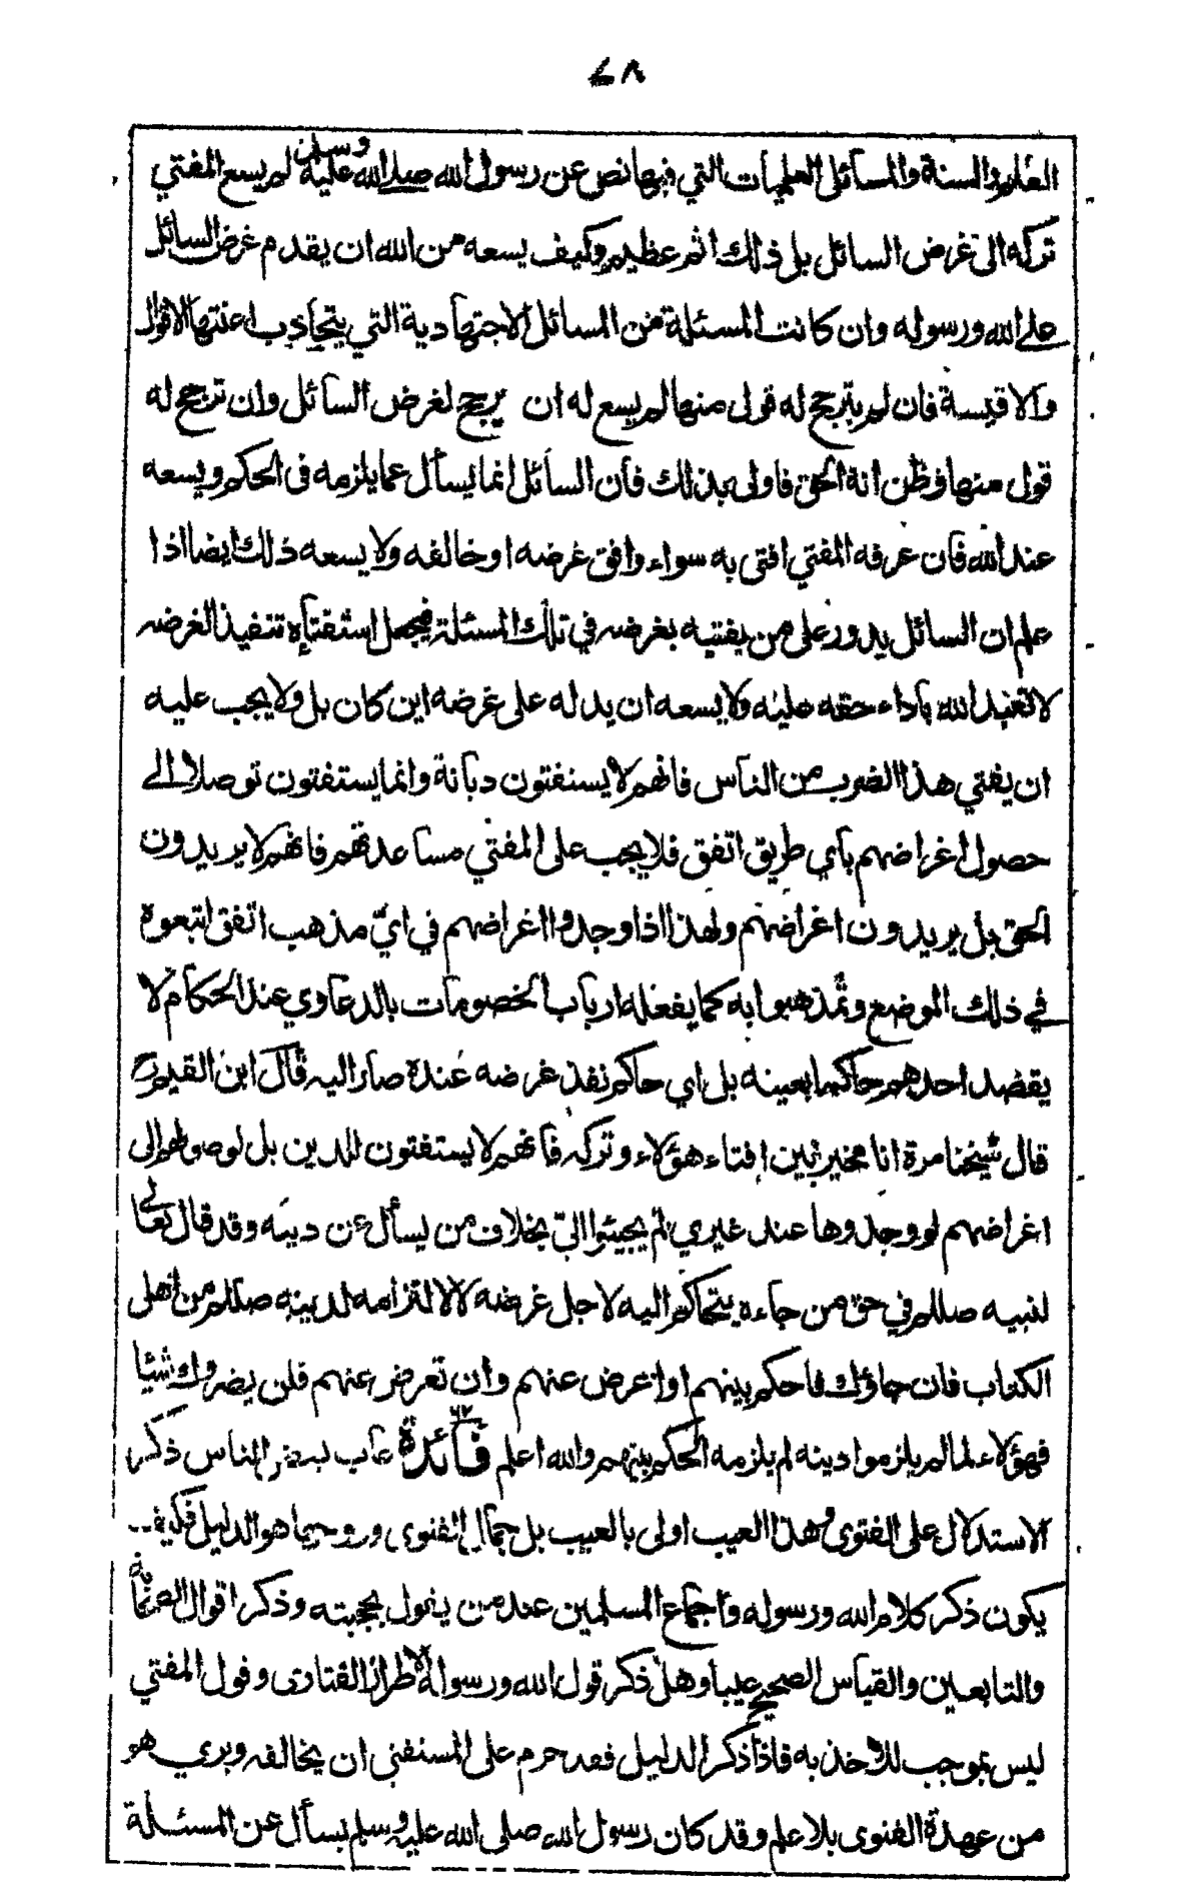 ٧٨
العلم والسنة والمسائل العلميات التي فيها نص عن رسول الله صلى الله عليه وسلم لم يسع المفتي
تركه الى غرض السائل بل ذلك اثم عظيم وكيف يسعه من الله ان يقدم غرض السائل
على الله ورسوله وان كانت المسئلة من المسائل الاجتهادية التي يتجاذب اعنتها الاقوال
والاقيسة فان لم يترجح له قول منها لم يسع له ان يرجح لغرض السائل وان ترجح له
قول منها وظن انه الحق فاولى بذلك فان السائل انما يسأل عما يلزمه فى الحكم ويسعه
عند الله فان عرفه المفتي افتى به سواء وافق غرضه او خالفه ولا يسعه ذلك ايضا اذا
علم ان السائل يدور على من يفتيه بغرضه في تلك المسئلة فيجعل استفتاءه تنفيذا لغرضه
لا تعبد الله باداء حقه عليه ولا يسعه ان يدله على غرضه اين كان بل ولا يجب عليه
ان يفتي هذا الضرب من الناس فانهم لا يستفتون ديانة وانما يستفتون توصلا الى
حصول اغراضهم باي طريق اتفق فلا يجب على المفتي مساعدتهم فانهم لا يريدون
الحق بل يريدون اغراضهم ولهذا اذا وجدوا اغراضهم في ايّ مذهب اتفق اتبعوه
في ذلك الموضع وتمذهبوا به كما يفعله ارباب الخصومات بالدعاوي عند الحكام لا
يقصد احدهم حاكما بعينه بل اي حاكم نفذ غرضه عنده صار اليه قال ابن القيم رح
قال شيخنا مرة انا مخير بين افتاء هؤلاء وتركه فانهم لا يستفتون للدين بل لوصولهم الى
اغراضهم لو وجدوها عند غيري لم يجيئوا اليّ بخلاف من يسأل عن دينه وقد قال تعالى
لنبيه صللم في حق من جاءه يتحاكم اليه لاجل غرضه لا لالتزامه لدينه صللم من اهل
الكتاب فان جاؤك فاحكم بينهم او اعرض عنهم وان تعرض عنهم فلن يضروك شيئا
فهؤلاء لما لم يلزموا دينه لم يلزمه الحكم بينهم والله اعلم فائدة عاب بعض الناس ذكر
الاستدلال على الفتوى وهذا العيب اولى بالعيب بل جمال الفتوى وروحها هو الدليل فكيف
يكون ذكر كلام الله ورسوله واجماع المسلمين عند من يقول بحجيته وذكر اقوال الصحابة
والتابعين والقياس الصحيح عيبا وهل ذكر قول الله ورسوله الا طراز الفتاوى وقول المفتي
ليس بموجب للاخذ به فاذا ذكر الدليل فقد حرم على المستفتى ان يخالفه وبري هو
من عهدة الفتوى بلا علم وقد كان رسول الله صلى الله عليه وسلم يسأل عن المسئلة